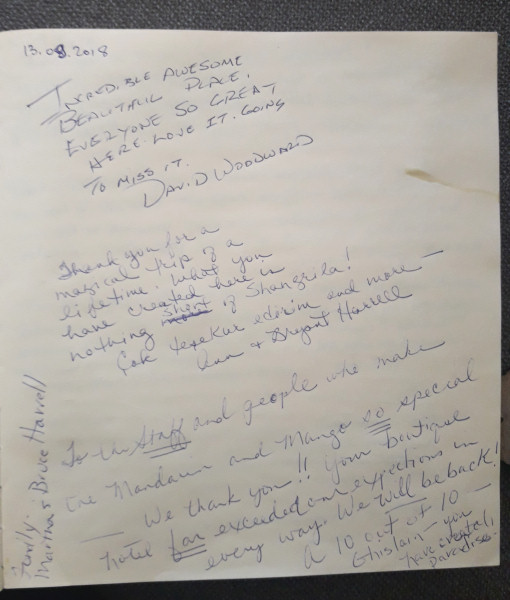 13.09.2018
INCREDIBLE AWESOME
BEAUTIFUL PLACE.
EVERYONE SO GREAT
HERE. LOVE IT. GOING
TO MISS IT.
DAVID WOODWARD
Thank you for a
magical trip of a
lifetime. What you
have created here is
nothing short of Shangrila!
Çok teşekür ederim and more —
Ann & Bryant Harrell
To the Staff and people who make
the Mandarin and Mango so special
— We thank you!! Your boutique
hotel far exceeded our expections in
every way. We will be back!
A 10 out of 10 —
Ghislain - you
have created
paradise.
Family.
Martha & Bruce Harrell